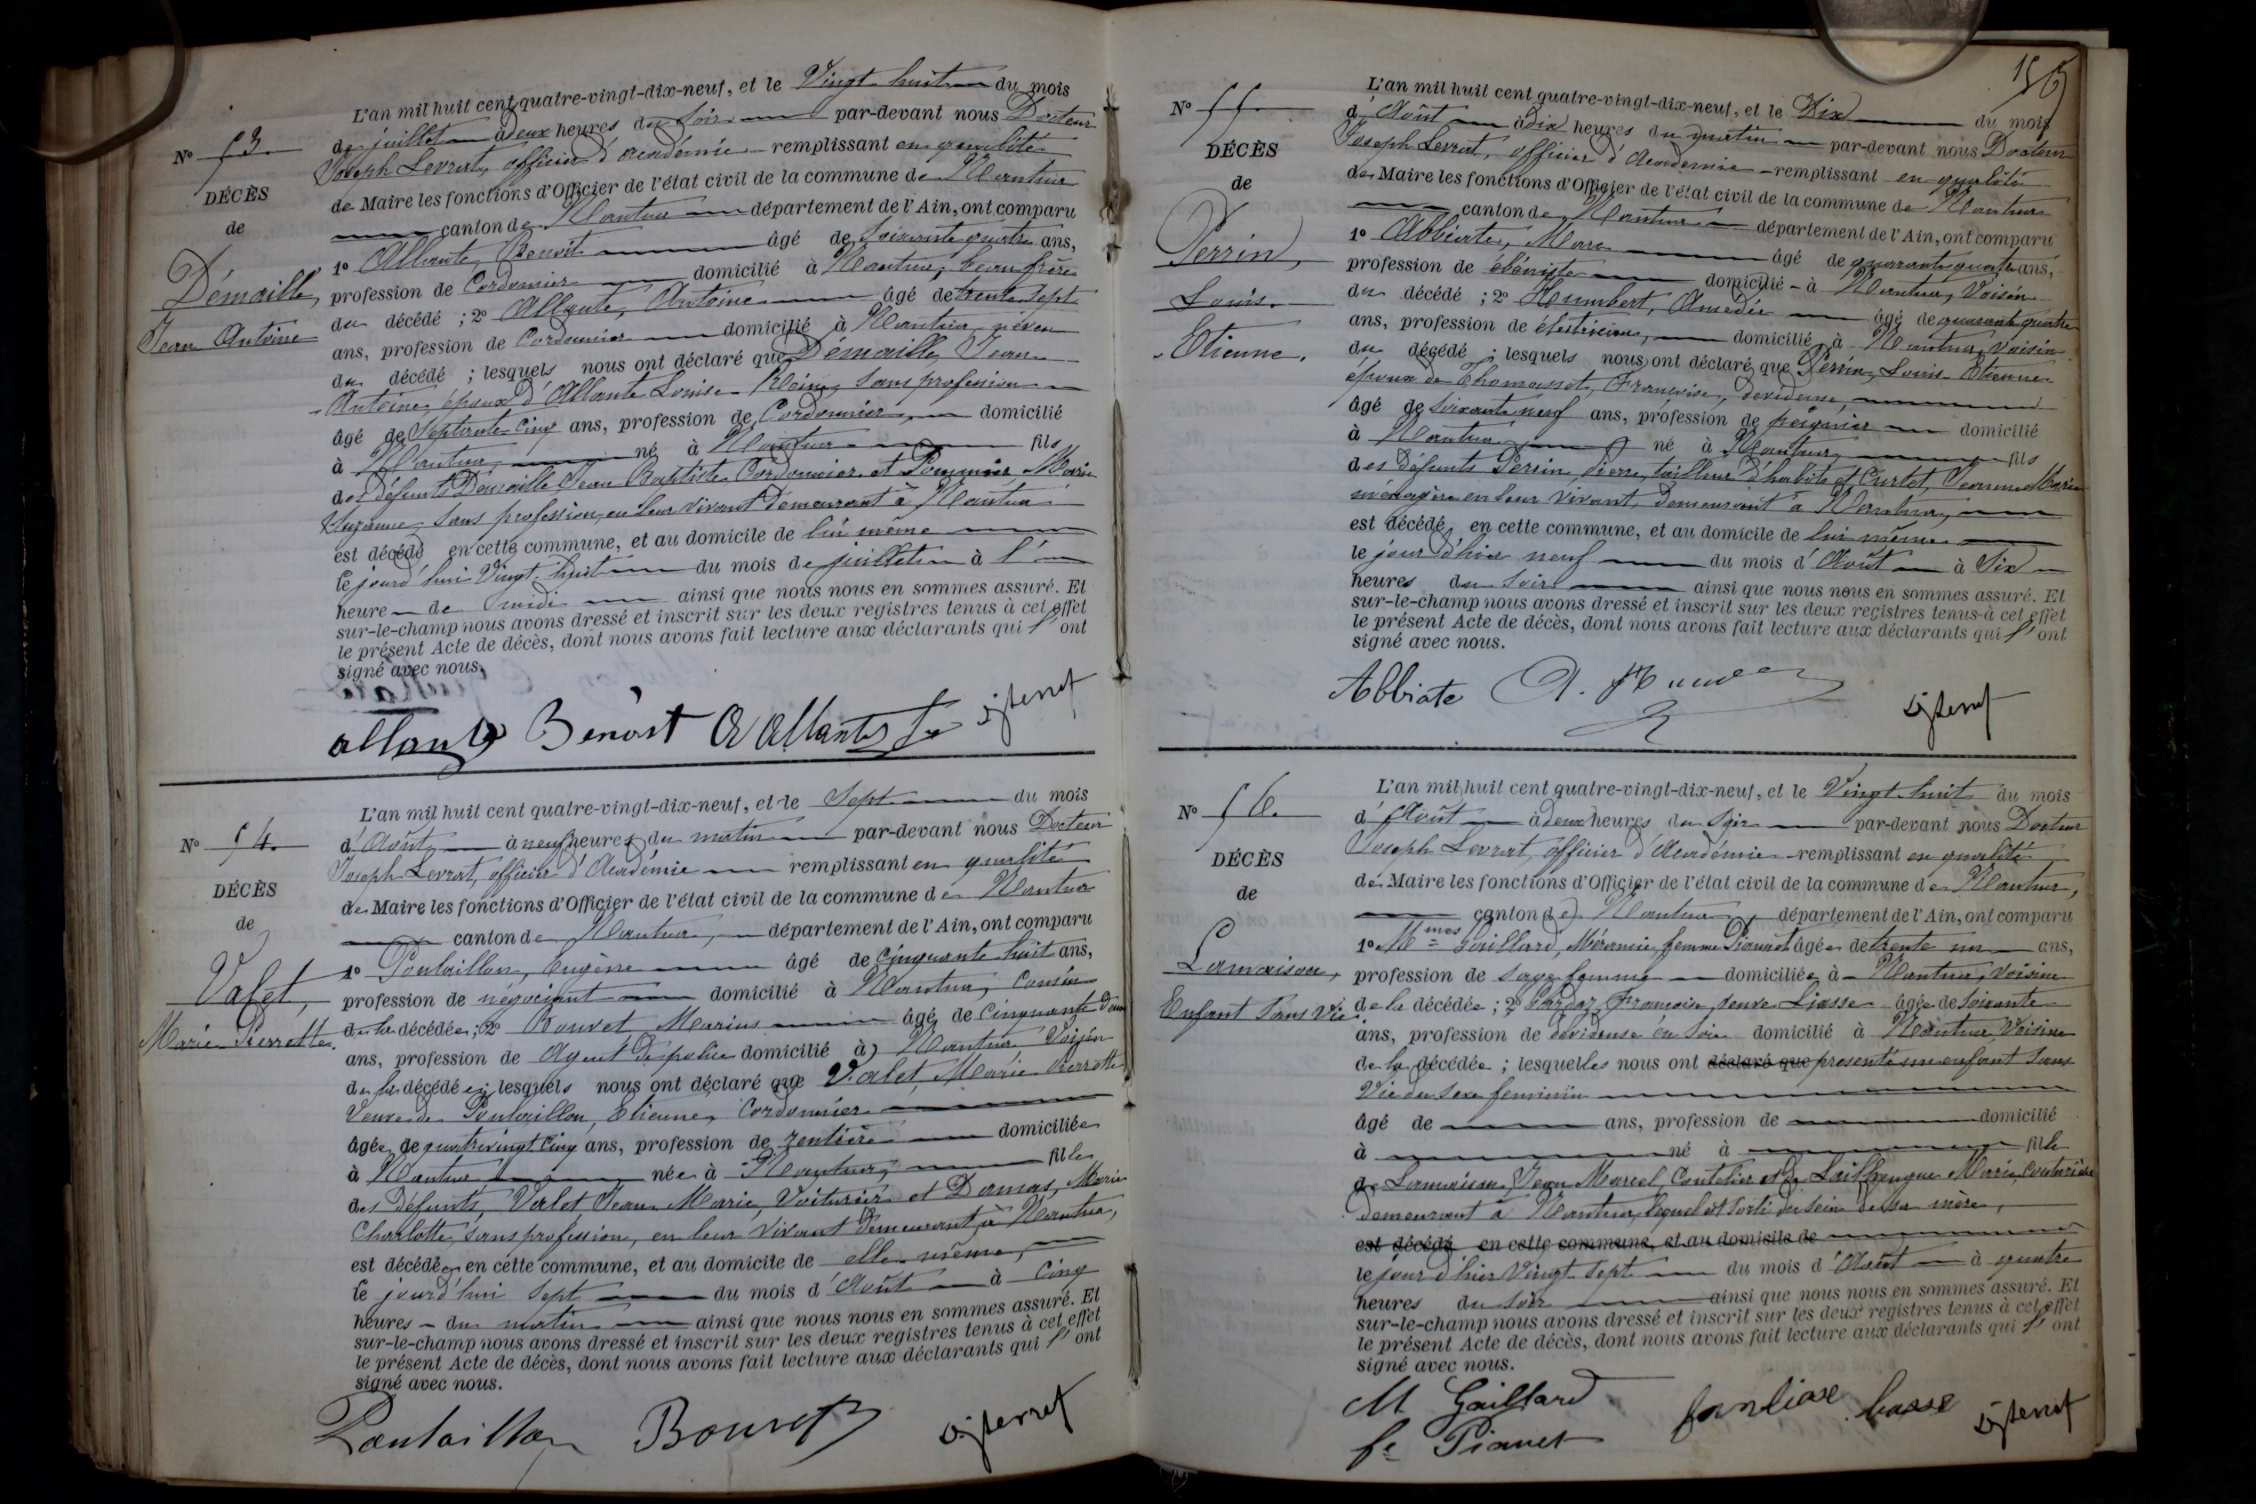 L'an mil huit cent quatre-vingt-dix-neuf, et le Vingt huit du mois
de juillet à deux heures du soir par-devant nous Docteur
Joseph Levrat, officier d'académie remplissant en qualité
de Maire les fonctions d'Officier de l'état civil de la commune de Nantua
canton de Nantua département de l'Ain, ont comparu
1º Allante, Benoit âgé de soixante quatre ans,
profession de Cordonnier domicilié à Nantua, beau frère
du décédé ; 2º Allante, Antoine âgé de trente sept
ans, profession de Cordonnier domicilié à Nantua, neveu
du décédé ; lesquels nous ont déclaré que Démaille, Jean
Antoine, époux d'Allante Louise Reine, sans profession
âgé de Septante cinq ans, profession de Cordonnier, domicilié
à Nantua, né à Nantua fils
des défunts Démaille Jean Baptiste Cordonnier et Marie
Suzanne, sans profession, en leur vivant demeurant à Nantua
est décédé en cette commune, et au domicile de lui même
le jourd'hui Vingt huit du mois de juillet à l'
heure de midi ainsi que nous nous en sommes assuré. Et
sur-le-champ nous avons dressé et inscrit sur les deux registres tenus à cet effet
le présent Acte de décès, dont nous avons fait lecture aux déclarants qui l'ont
signé avec nous.
Nº 53
DÉCÈS
de
Démaille,
Jean Antoine
allante Benoist A Allante
L'an mil huit cent quatre-vingt-dix-neuf, et le Sept du mois
d'Août à neuf heures du matin par-devant nous Docteur
Joseph Levrat, officier d'Académie remplissant en qualité
de Maire les fonctions d'Officier de l'état civil de la commune de Nantua
canton de Nantua, département de l'Ain, ont comparu
1º Pontaillon, Eugène âgé de Cinquante huit ans,
profession de négociant domicilié à Nantua, Cousin
de la décédée ; 2º Bouvet Marius âgé de Cinquante deux
ans, profession de Agent de police domicilié à Nantua Voisin
de la décédée ; lesquels nous ont déclaré que Valet, Marie Pierrette
Veuve de Pontaillon, Etienne, Cordonnier
âgée de quatrevingt cinq ans, profession de rentière domiciliée
à Nantua née à Nantua, fille
des défunts, Valet Jean Marie, Voiturier et Damas, Marie
Charlotte, sans profession, en leur vivant demeurant à Nantua,
est décédée en cette commune, et au domicile de elle même,
le jourd'hui sept du mois d'Août à Cinq
heures du matin ainsi que nous nous en sommes assuré. Et
sur-le-champ nous avons dressé et inscrit sur les deux registres tenus à cet effet
le présent Acte de décès, dont nous avons fait lecture aux déclarants qui l'ont
signé avec nous.
Nº 54.
DÉCÈS
de
Valet,
Marie Pierrette.
Pontaillon Bouvet
L'an mil huit cent quatre-vingt-dix-neuf, et le Dix du mois
d'Août à dix heures du matin par-devant nous Docteur
Joseph Levrat, officier d'Académie remplissant en qualité
de Maire les fonctions d'Officier de l'état civil de la commune de Nantua
canton de Nantua département de l'Ain, ont comparu
1º Abbiate, Marc âgé de quarante quatre ans,
profession de ébéniste domicilié à Nantua, Voisin
du décédé ; 2º Humbert, Amedée âgé de quarante quatre
ans, profession de électricien, domicilié à Nantua, voisin
du décédé ; lesquels nous ont déclaré que Perrin, Louis Etienne
époux de Thomasset, Françoise, devideuse,
âgé de soixante neuf ans, profession de peignier domicilié
à Nantua né à Nantua, fils
des défunts Perrin Pierre, tailleur d'habits et Curtet, Jeanne Marie
ménagère en leur vivant demeurant à Nantua,
est décédé en cette commune, et au domicile de lui même
le jour d'hier neuf du mois d'Août à Six
heures du soir ainsi que nous nous en sommes assuré. Et
sur-le-champ nous avons dressé et inscrit sur les deux registres tenus à cet effet
le présent Acte de décès, dont nous avons fait lecture aux déclarants qui l'ont
signé avec nous.
Nº 55
DÉCÈS
de
Perrin,
Louis
Etienne.
Abbiate
L'an mil huit cent quatre-vingt-dix-neuf, et le Vingt huit du mois
d'Août à deux heures du Soir par-devant nous Docteur
Joseph Levrat, officier d'Académie remplissant en qualité
de Maire les fonctions d'Officier de l'état civil de la commune de Nantua,
canton de Nantua, département de l'Ain, ont comparu
1º Mmes Gaillard, Mérancie, femme Pianet âgée de trente un ans,
profession de sage femme domiciliée à Nantua, voisine
de la décédée ; 2º Françoise, veuve Liasse âgée de soixante
ans, profession de devideuse en soie domicilié à Nantua, Voisine
de la décédée ; lesquelles nous ont déclaré que presenté un enfant Sans
Vie du sexe feminin
âgé de ans, profession de domicilié
à né à fille
de Lamaison, Jean Marcel, Coutelier et de Marie, couturière
demeurant à Nantua, lequel est sorti du sein de sa mère,
est décédé en cette commune, et au domicile de
le jour d'hier Vingt Sept du mois d'Août à quatre
heures du soir ainsi que nous nous en sommes assuré. Et
sur-le-champ nous avons dressé et inscrit sur les deux registres tenus à cet effet
le présent Acte de décès, dont nous avons fait lecture aux déclarants qui l'ont
signé avec nous.
Nº 56.
DÉCÈS
de
Lamaison,
Enfant Sans Vie
M Gaillard
fe Pianet